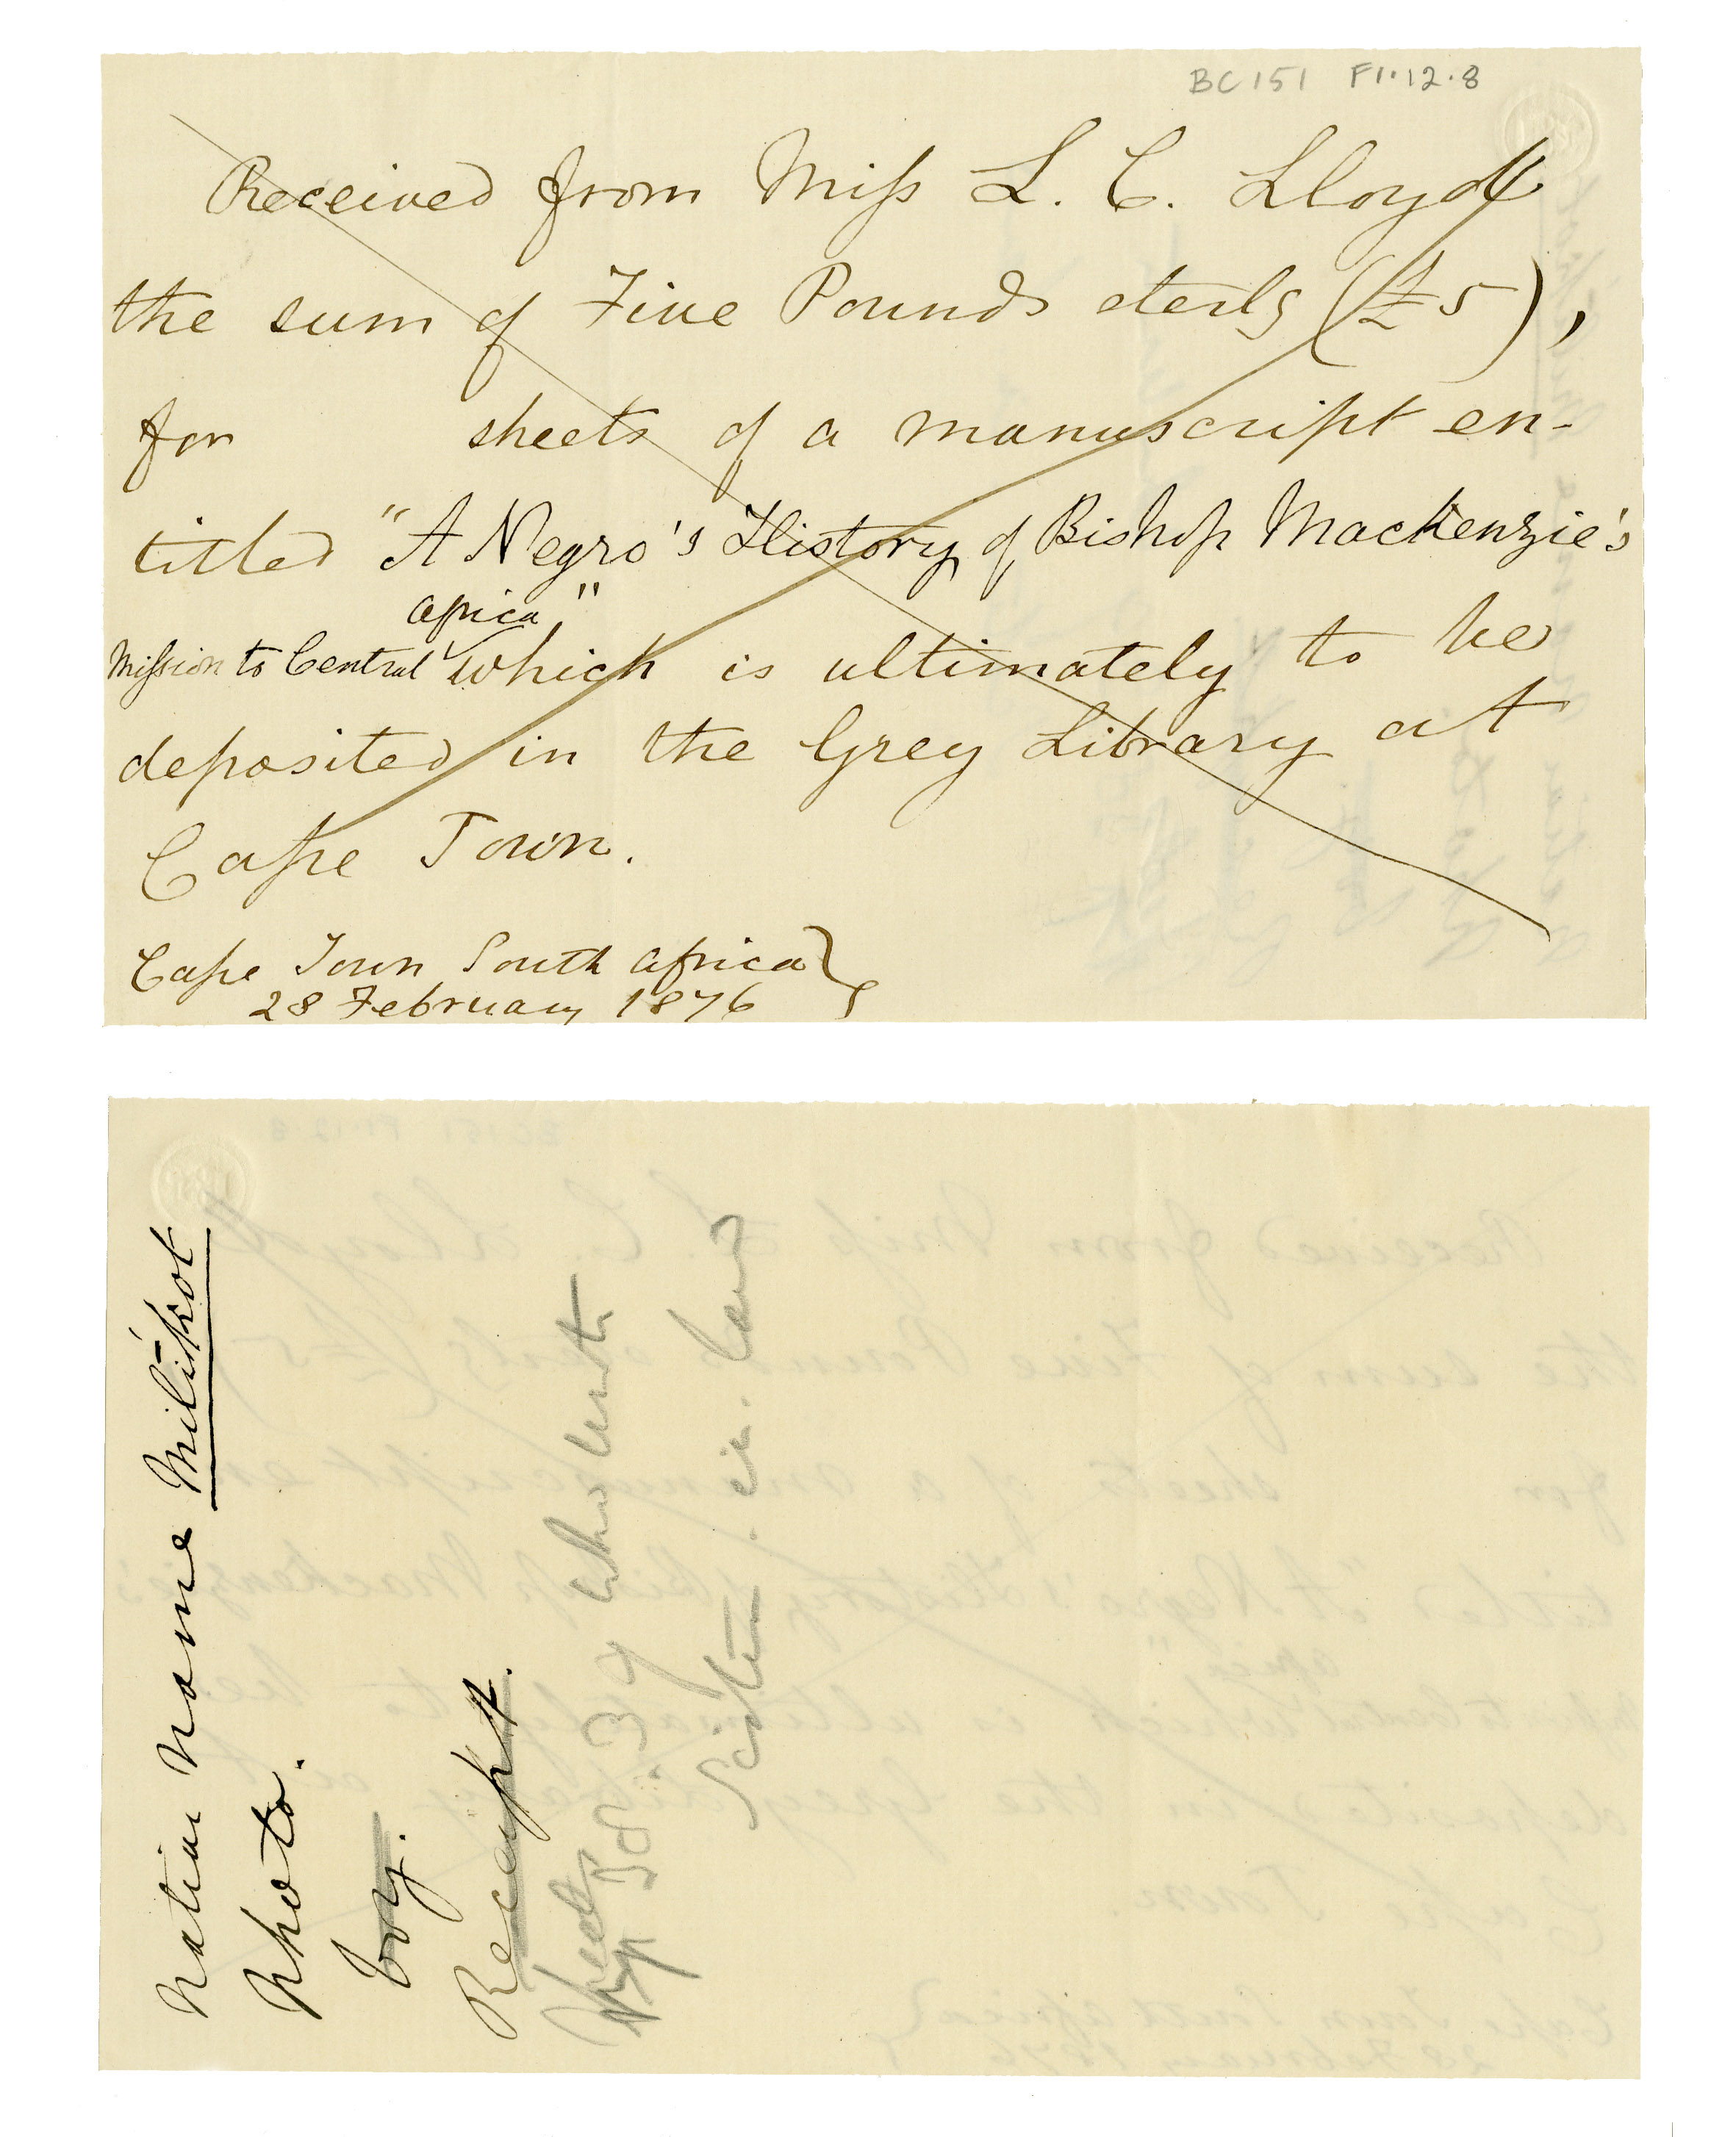 BC151 F1.12.8
Received from Miss L. C. Lloyd
the sum of Five Pounds sterlg (£5),
for sheets of a manuscript en-
titled "A Negro's History of Bishop Mackenzie's
Africa"
Mission to Central which is ultimately to be
deposited in the Grey Library at
Cape Town.
Cape Town South Africa
28 February 1876
Native name
Photo.
Receipt.
34 who lent
Sister in law